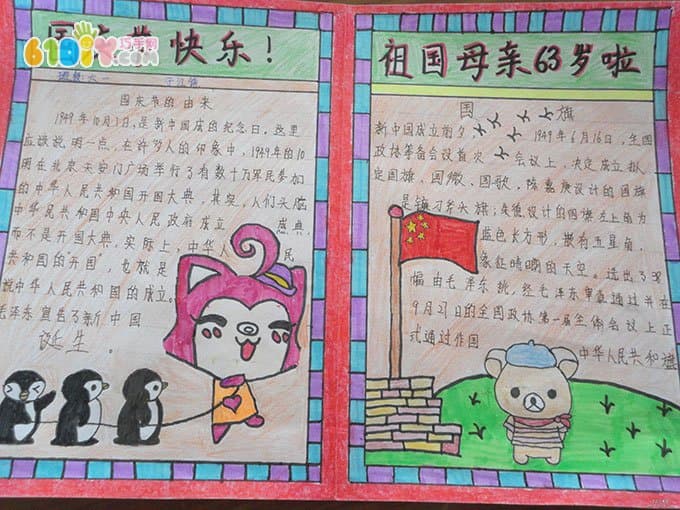 快乐！
班级：六一
国庆节的由来
1949年10月1日，是新中国成的纪念日，这里
应该说明一点，在许多人的印象中，1949年的10
明在北京天安门广场举行了有数十万军民参加
的中华人民共和国开国大典，其实，人们头脑
中华人民共和国中央人民政府成立 盛典，
而不是开国大典，实际上，中华人 民
共和国的"开国"，也就是
说中华人民共和国的成立。
毛泽东宣告了新中国
诞生。
祖国母亲63岁啦
国 旗
新中国成立前夕 1949年6月16日，全国
政协筹备会议首次 会议上，决定成立拟
定国旗、国徽、国歌，陈嘉庚设计的国旗
是镰刀斧头旗；朱德设计的国旗左上角为
蓝色长方形，嵌有五星角，
象征晴朗的天空。选出了38
幅由毛泽东挑，经毛泽东审查通过并在
9月27日的全国政协第一届全体会议上正
式通过作国
中华人民共和旗